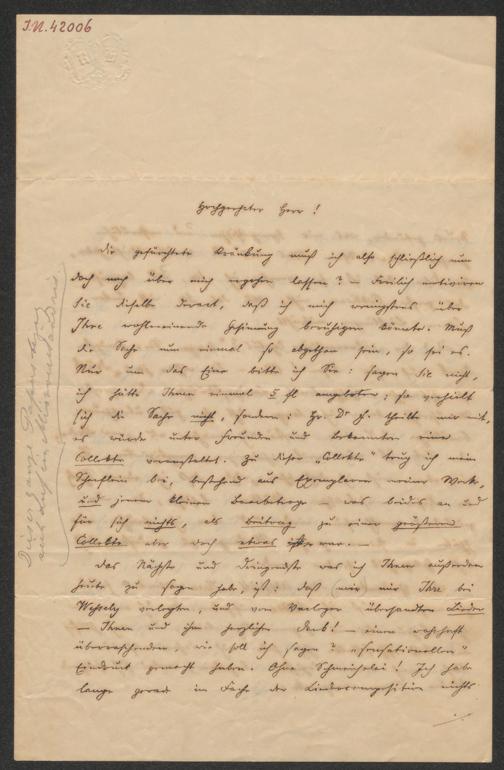 I.N. 42006
Hochgeehrter Herr!
Die gefürchtete Kränkung muß ich also schließlich nun
doch noch über mich ergehen lassen? – Freilich motiviren
Sie dieselbe derart, daß ich mich wenigstens über
Ihre wohlmeinende Gesinnung beruhigen könnte. Muß
die Sache nun einmal so abgethan sein, so sei es.
Nur um das Eine bitte ich Sie: sagen Sie nicht,
ich hätte Ihnen einmal 5 fl angeboten; so verhielt
sich die Sache nicht, sondern: Hr. Dr theilte mir mit,
es würde unter Freunden und Bekannten eine
Collekte veranstaltet. Zu dieser „Collekte" trug ich mein
Scherflein bei, bestehend aus Exemplaren meiner Werke,
und jenem kleinen Baarbetrage – was beides an und
für sich nichts, als Beitrag zu einer größeren
Collekte aber doch etwas war. –
Das Nächste und Dringendste was ich Ihnen außerdem
heute zu sagen habe, ist: daß (mir) nur Ihre bei
Wetzler verlegten, und vom Verleger übersandten Lieder
– Ihnen und ihm herzlichen Dank! – einen wahrhaft
überraschenden, wie soll ich sagen? „sensationellen"
Eindruck gemacht haben. Ohne Schmeichelei! Ich habe
lange gerade im Fache der Liedercomposition nichts